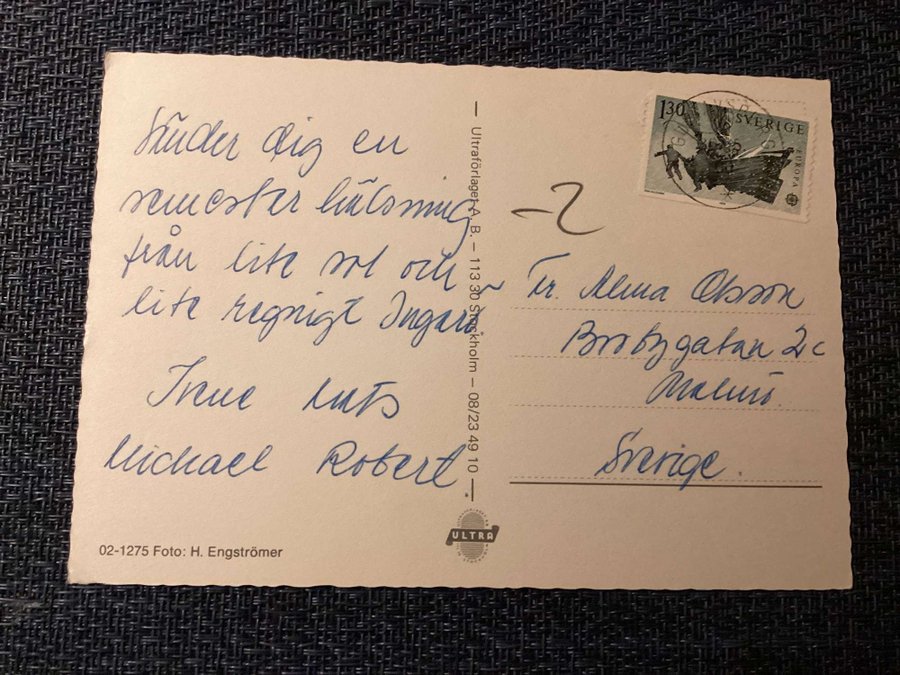 Sänder dig en
semester hälsning
från lite sol och
lite regnigt Ingarö.
Irene Mats
Michael Robert.
02-1275 Foto: H. Engströmer
Ultraförlaget A. B. – 113 30 Stockholm – 08/23 49 10
ULTRA
130 SVERIGE
EUROPA
Fr. Alma Olsson
Brobygatan 2c
Malmö.
Sverige.